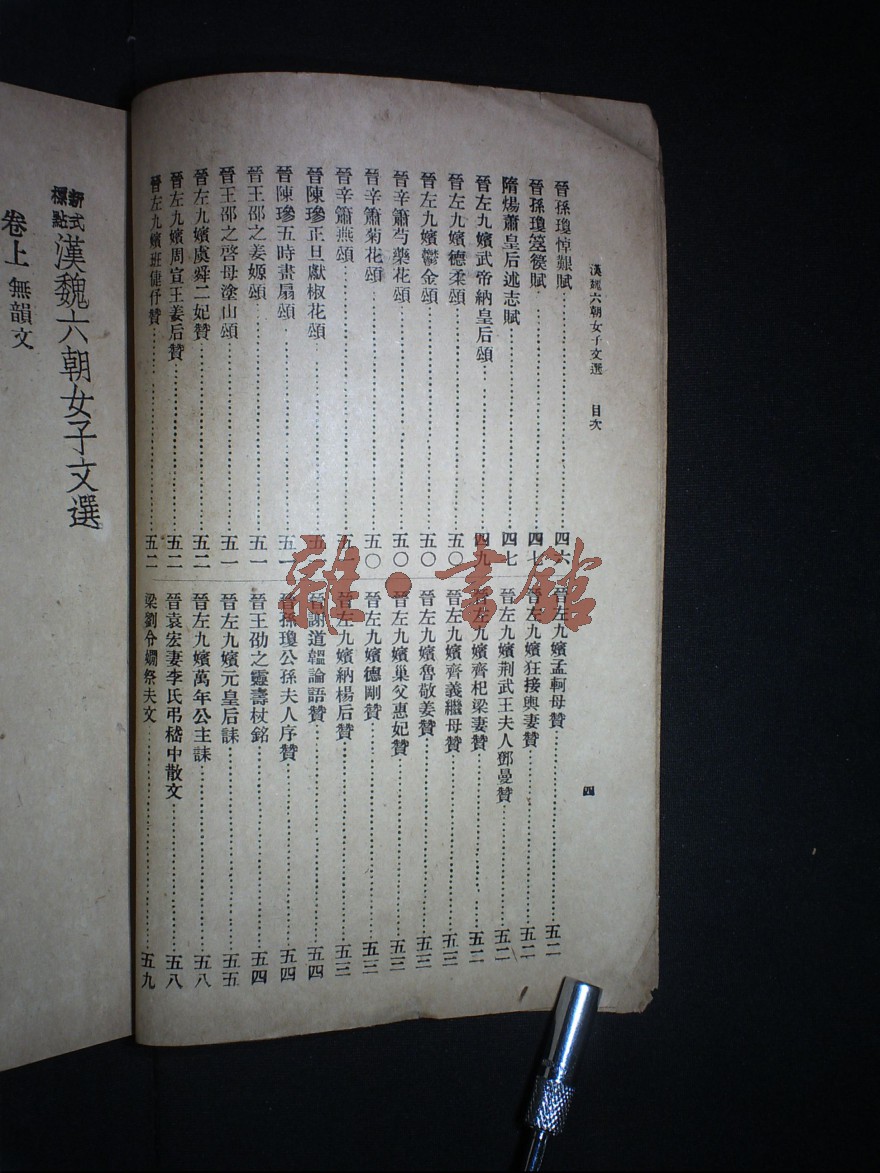 漢魏六朝女子文選 目次
四
晉孫瓊悼艱賦……四六
晉孫瓊箜篌賦……四七
隋煬蕭皇后述志賦……四七
晉左九嬪武帝納皇后頌……四九
晉左九嬪德柔頌……五〇
晉左九嬪鬱金頌……五〇
晉辛簫芍藥花頌……五〇
晉辛簫菊花頌……五〇
晉辛簫燕頌……五一
晉陳璆正旦獻椒花頌……五一
晉陳璆五時畫扇頌……五一
晉王邵之姜嫄頌……五一
晉王邵之啓母塗山頌……五一
晉左九嬪虞舜二妃贊……五二
晉左九嬪周宣王姜后贊……五二
晉左九嬪班倢伃贊……五二
晉左九嬪孟軻母贊……五二
晉左九嬪狂接輿妻贊……五二
晉左九嬪荆武王夫人鄧曼贊……五二
晉左九嬪齊杞梁妻贊……五二
晉左九嬪齊義繼母贊……五三
晉左九嬪魯敬姜贊……五三
晉左九嬪巢父惠妃贊……五三
晉左九嬪德剛贊……五三
晉左九嬪納楊后贊……五三
晉謝道韞論語贊……五四
晉孫瓊公孫夫人序贊……五四
晉王劭之靈壽杖銘……五四
晉左九嬪元皇后誄……五五
晉左九嬪萬年公主誄……五八
晉袁宏妻李氏弔嵇中散文……五八
梁劉令嫻祭夫文……五九
新式標點漢魏六朝女子文選
卷上 無韻文
雜·書館